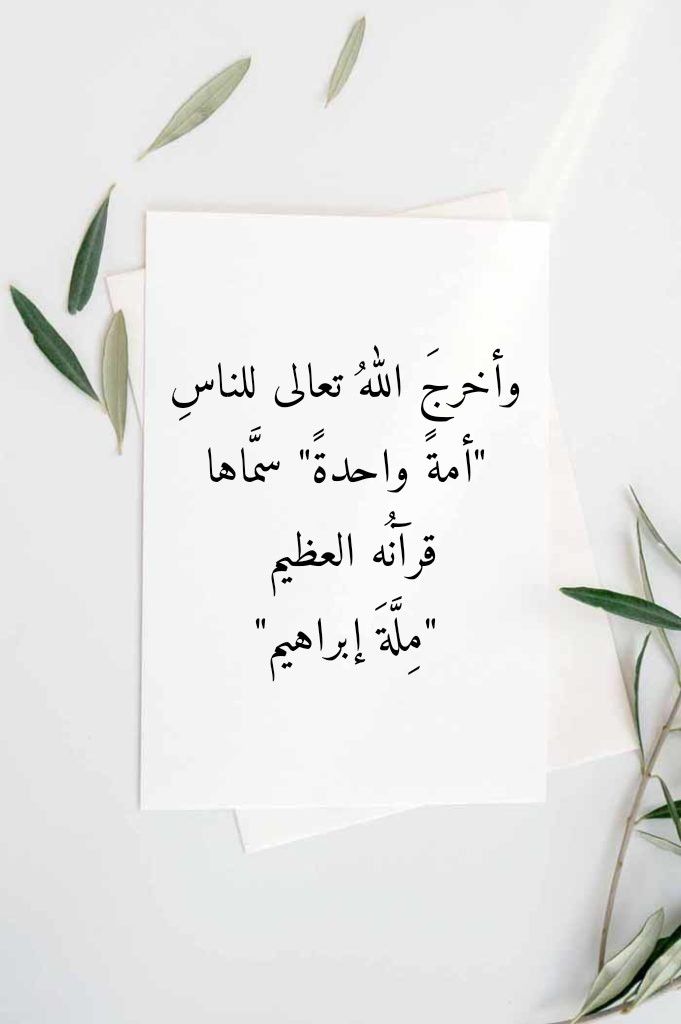 وأخرجَ اللهُ تعالى للناسِ
"أمةً واحدةً" سمَّاها
قرآنُه العظيم
"مِلَّةَ إبراهيم"